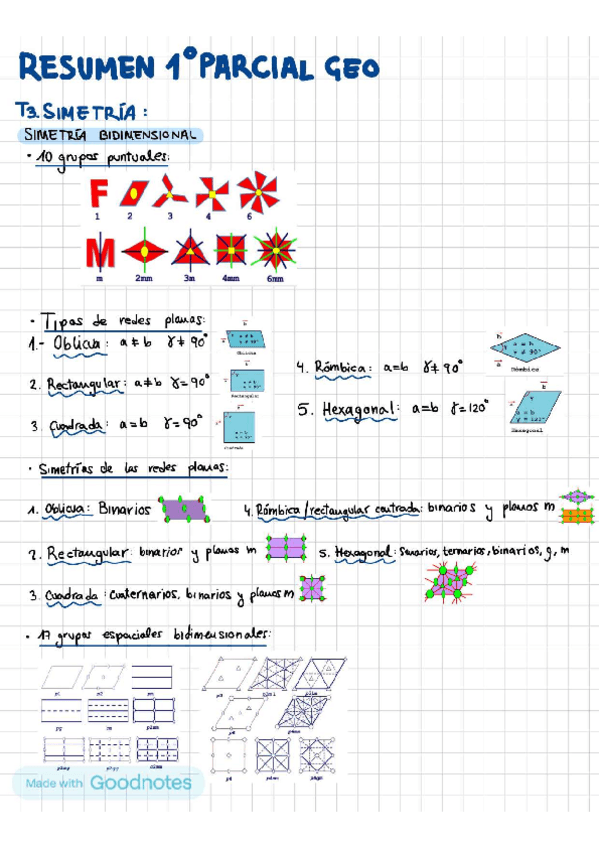 RESUMEN 1º PARCIAL GEO
T3. SIMETRÍA:
SIMETRÍA BIDIMENSIONAL
· 10 grupos puntuales:
F
1 2 3 4 6
M
m 2mm 3m 4mm 6mm
· Tipos de redes planas:
1.- Oblicua: a ≠ b γ ≠ 90º
2. Rectangular: a ≠ b γ = 90º
3. Cuadrada: a = b γ = 90º
4. Rómbica: a = b γ ≠ 90º
Rómbica
5. Hexagonal: a = b γ = 120º
Hexagonal
· Simetrías de las redes planas:
1. Oblicua: Binarios
2. Rectangular: binarios y planos m
3. Cuadrada: cuaternarios, binarios y planos m
4. Rómbica/rectangular centrada: binarios y planos m
5. Hexagonal: Senarios, ternarios, binarios, g, m
· 17 grupos espaciales bidimensionales:
p1 p2 pm
pg
Made with Goodnotes